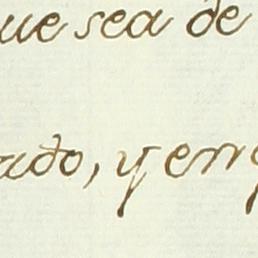 ue sea de
ado, y en